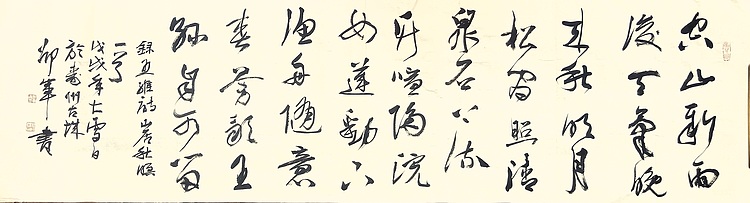 空山新雨
後天氣晚
来秋明月
松間照清
泉石上流
竹喧歸浣
女蓮動下
漁舟隨意
春芳歇王
孫自可留
録王維詩山居秋暝
一首
戊戌年大雪日
於州古城
書